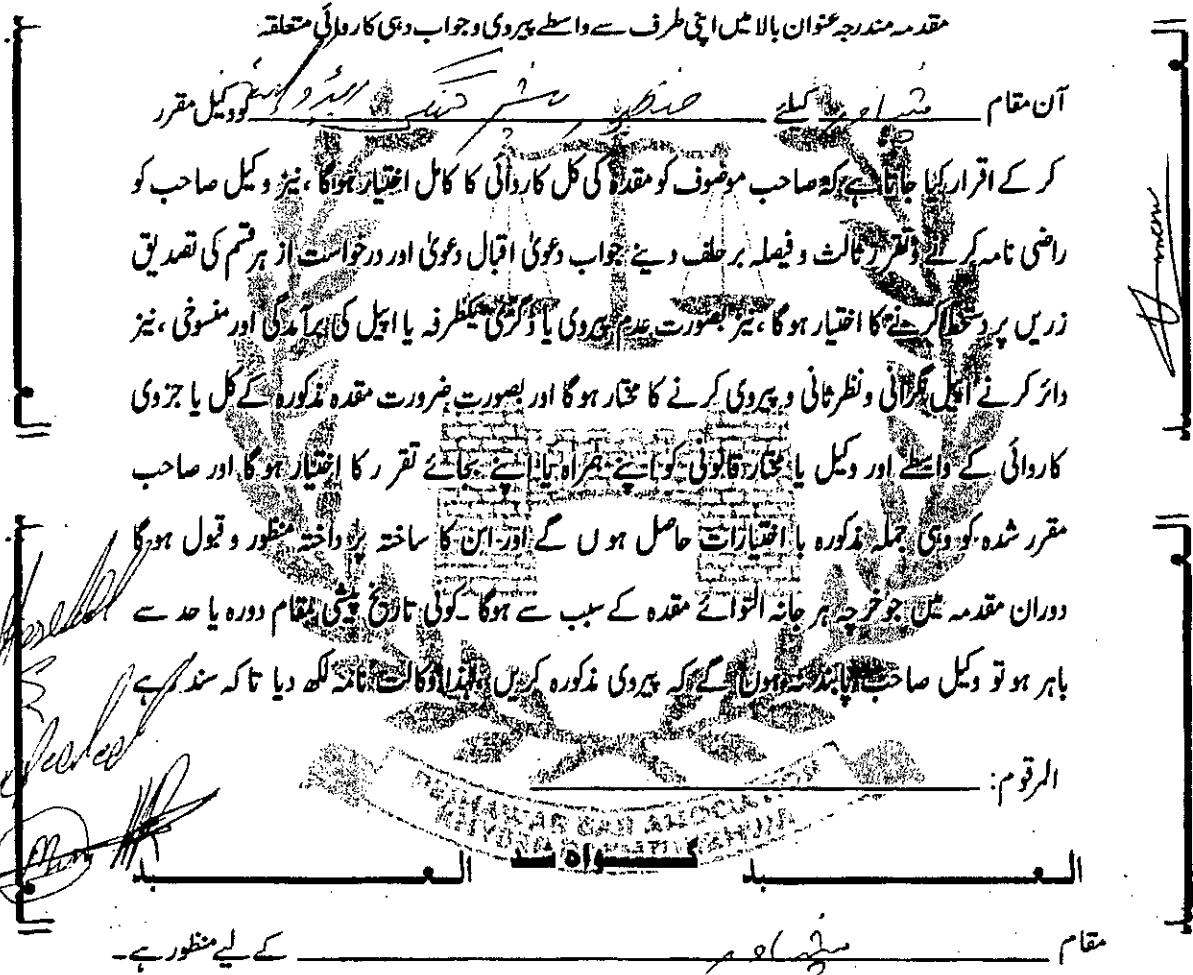 مقدمہ مندرجہ عنوان بالا میں اپنی طرف سے واسطے پیروی و جواب دہی کاروائی متعلقہ
آن مقام پشاور کیلئے کو وکیل مقرر
کر کے اقرار کیا جاتا ہے کہ صاحب موصوف کو مقدمہ کی کل کاروائی کا کامل اختیار ہوگا ، نیز وکیل صاحب کو
راضی نامہ کرنے و تقرر ثالث و فیصلہ بر حلف دینے جواب دعویٰ اقبال دعویٰ اور درخواست از ہر قسم کی تصدیق
زریں پر دستخط کرنے کا اختیار ہوگا ، نیز بصورت عدم پیروی یا ڈگری یکطرفہ یا اپیل کی برآمدگی اور منسوخی ، نیز
دائر کرنے اپیل نگرانی و نظرثانی و پیروی کرنے کا مختار ہوگا اور بصورت ضرورت مقدہ مذکورہ کے کل یا جزوی
کاروائی کے واسطے اور وکیل یا مختار قانونی کو اپنے ہمراہ یا اپنے بجائے تقرر کا اختیار ہوگا اور صاحب
مقرر شدہ کو وہی جملہ مذکورہ با اختیارات حاصل ہوں گے اور اس کا ساختہ پرداختہ منظور و قبول ہوگا
دوران مقدمہ میں جو خرچہ ہر جانہ التوائے مقدہ کے سبب سے ہوگا ۔ کوئی تاریخ پیشی مقام دورہ یا حد سے
باہر ہو تو وکیل صاحب پابند نہ ہوں گے کہ پیروی مذکورہ کریں ، لہٰذا وکالت نامہ لکھ دیا تا کہ سند رہے
المرقوم:
PESHAWAR BAR ASSOCIATION
العبد گواہ شد العبد
مقام پشاور کے لیے منظور ہے۔